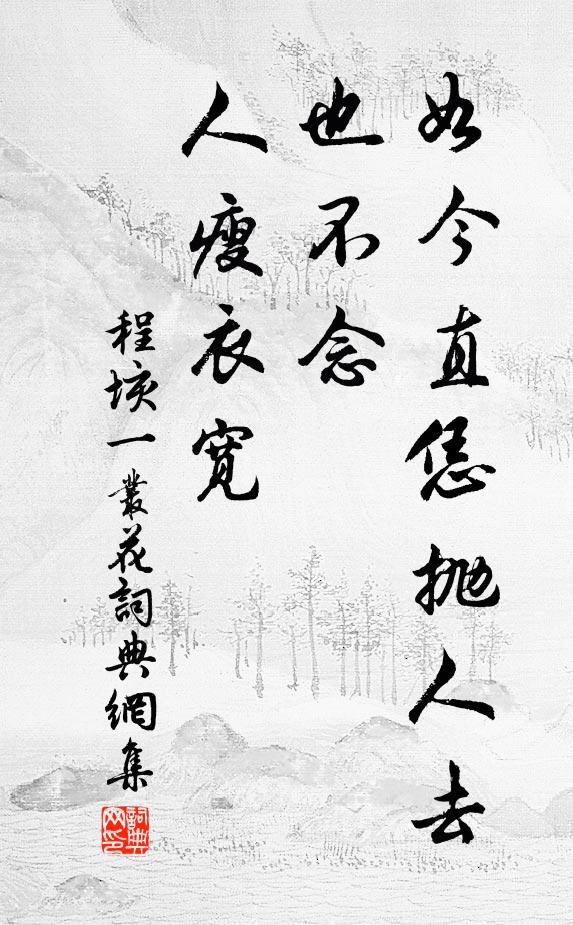 如今直恁拋人去
也不念
人瘦衣寬
程垓一叢花詞典網集
詞典
网印